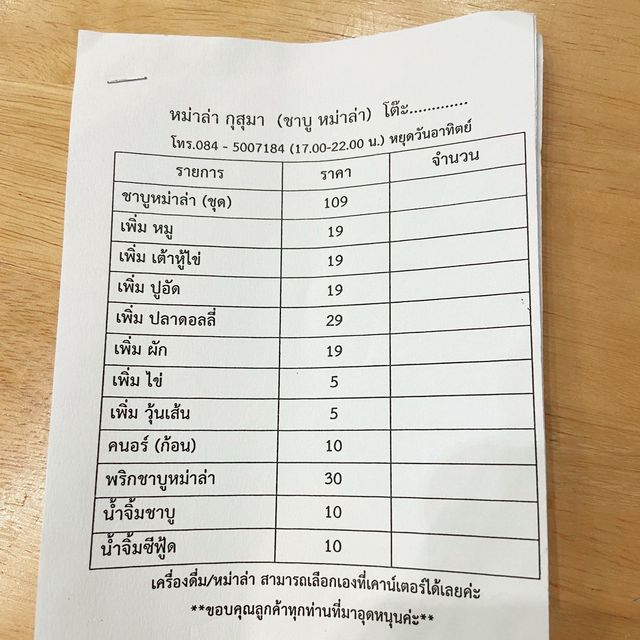 หม่าล่า กุสุมา (ชาบู หม่าล่า) โต๊ะ.............
โทร.084 - 5007184 (17.00-22.00 น.) หยุดวันอาทิตย์
รายการ ราคา จำนวน
ชาบูหม่าล่า (ชุด) 109
เพิ่ม หมู 19
เพิ่ม เต้าหู้ไข่ 19
เพิ่ม ปูอัด 19
เพิ่ม ปลาดอลลี่ 29
เพิ่ม ผัก 19
เพิ่ม ไข่ 5
เพิ่ม วุ้นเส้น 5
คนอร์ (ก้อน) 10
พริกชาบูหม่าล่า 30
น้ำจิ้มชาบู 10
น้ำจิ้มซีฟู้ด 10
เครื่องดื่ม/หม่าล่า สามารถเลือกเองที่เคาน์เตอร์ได้เลยค่ะ
**ขอบคุณลูกค้าทุกท่านที่มาอุดหนุนค่ะ**